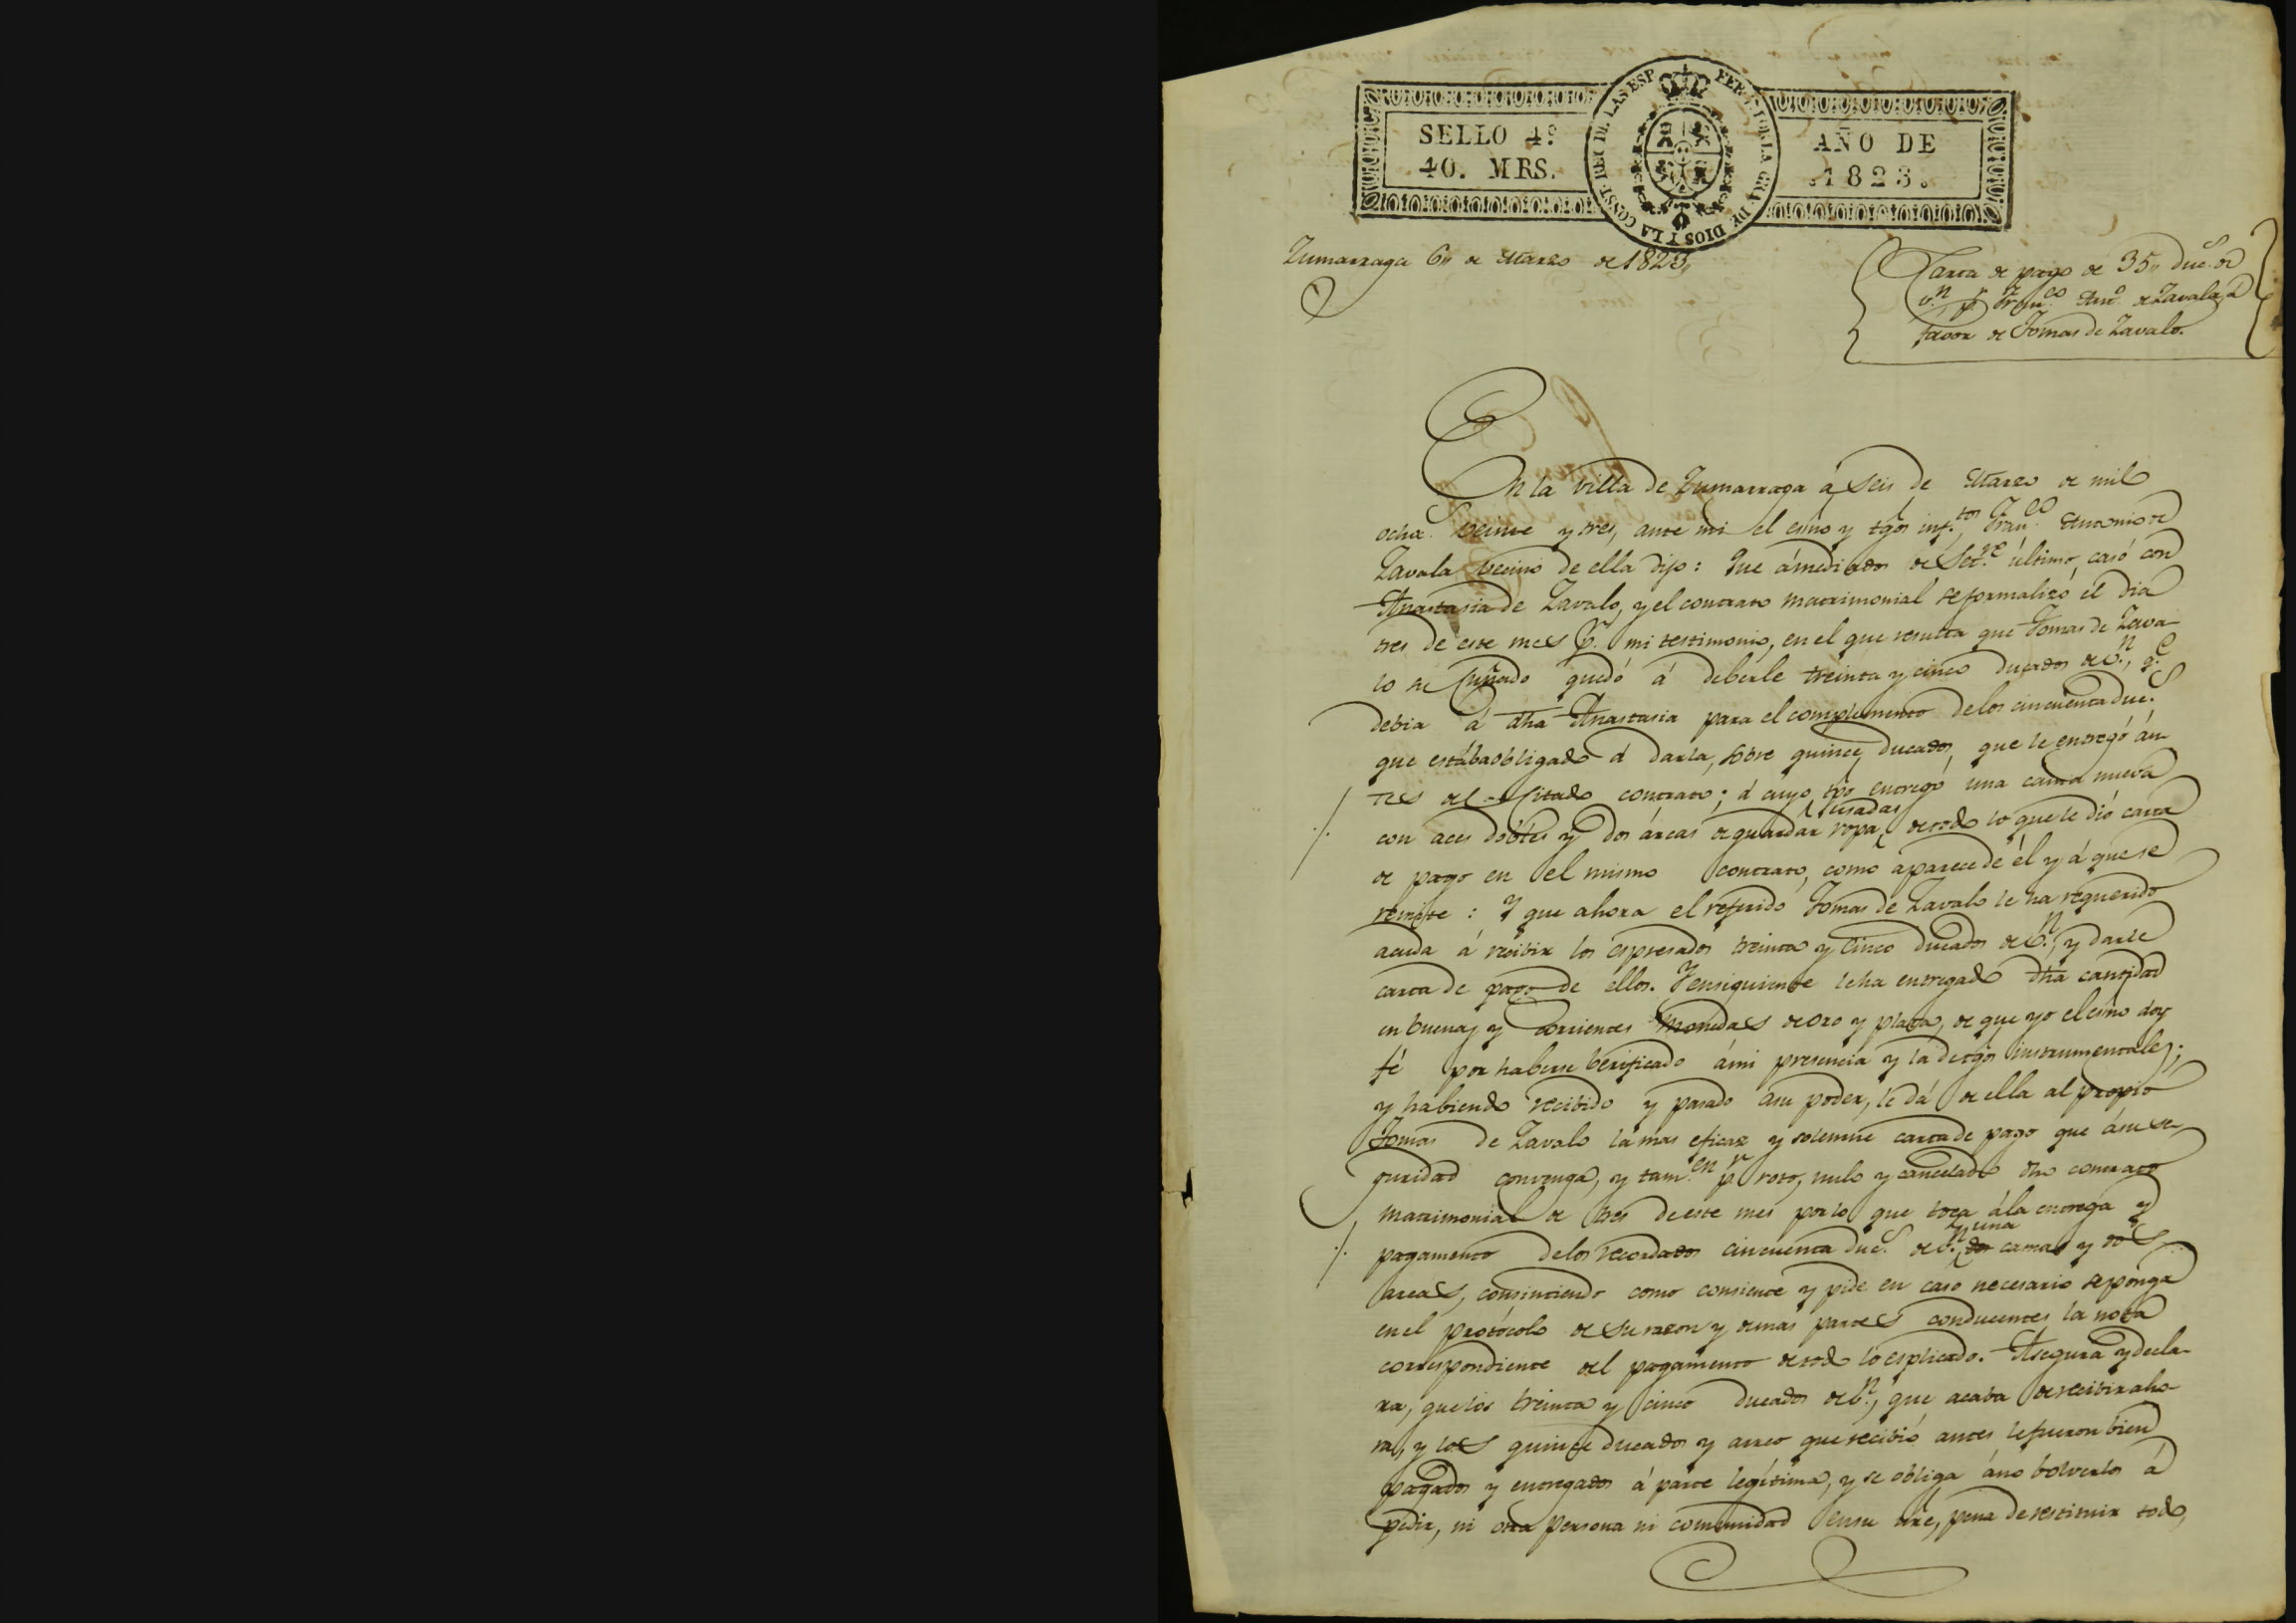 SELLO 4º
40. MRS.
AÑO DE
1823.
Zumarraga 6,, de Marzo de 1823,,
Carta de pago de 35,, duc.s de
v.n p.r Fran.co Ant.o de Zavala, á
favor de Tomas de Zavalo.
En la villa de Zumarraga á seis de Marzo de mil
ocho.s veinte y tres, ante mi el esno y tgos inf.tos Fran.co Antonio de
Zavala vecino de ella dijo: Que ámediados de Set.re último, casó con
Anastasia de Zavalo, y el contrato matrimonial se formalizó el dia
tres de este mes p.r mi testimonio, en el que resulta que Tomas de Zava-
lo su Cuñado quedó á deberle treinta y cinco ducados de v.n, q.e
debia á dha Anastasia para el complemento delos cincuenta duc.s
que estába obligado á darla, sobre quince ducados, que le entregó án-
tes del citado contrato; á cuyo tpo entregó una cama nueva
con aces dobles y dos árcas de guardar ropa usadas, de todo lo que le dió carta
de pago en el mismo contrato, como aparece de él y á que se
remite: Y que ahora el referido Tomas de Zavalo le ha requerido
acuda á recibir los espresados treinta y cinco ducados de v.n, y darle
carta de pago de ellos. Y ensiguiente le ha entregado dha cantidad
en buenas y corrientes monedas de oro y plata, de que yo el esno doy
fé por haberse verificado ámi presencia y la de tgos instrumentales;
y habiendo recibido y pasado asu poder, le dá de ella al propio
Tomas de Zavalo la mas eficaz y solemne carta de pago que ásu se-
guridad convenga, y tam.en p.r roto, nulo y cancelado dho contrato
matrimonial de tres de este mes por lo que toca ála entrega y
pagamento delos recordados cincuenta duc.s de v.n, una cama y dos
arcas, consintiendo como consiente y pide en caso necesario se ponga
en el protócolo de su razon y demas partes conducentes la nota
correspondiente del pagamento de todo lo esplicado. Asegura y decla-
ra, que los treinta y cinco ducados de v.n, que acaba de recibir aho-
ra, y los quince ducados y arreo que recibió antes le fueron bien
pagados y entregados á parte legítima, y se obliga áno bolverlos á
pedir, ni otra persona ni comunidad ensu nre, pena de restituir todo,